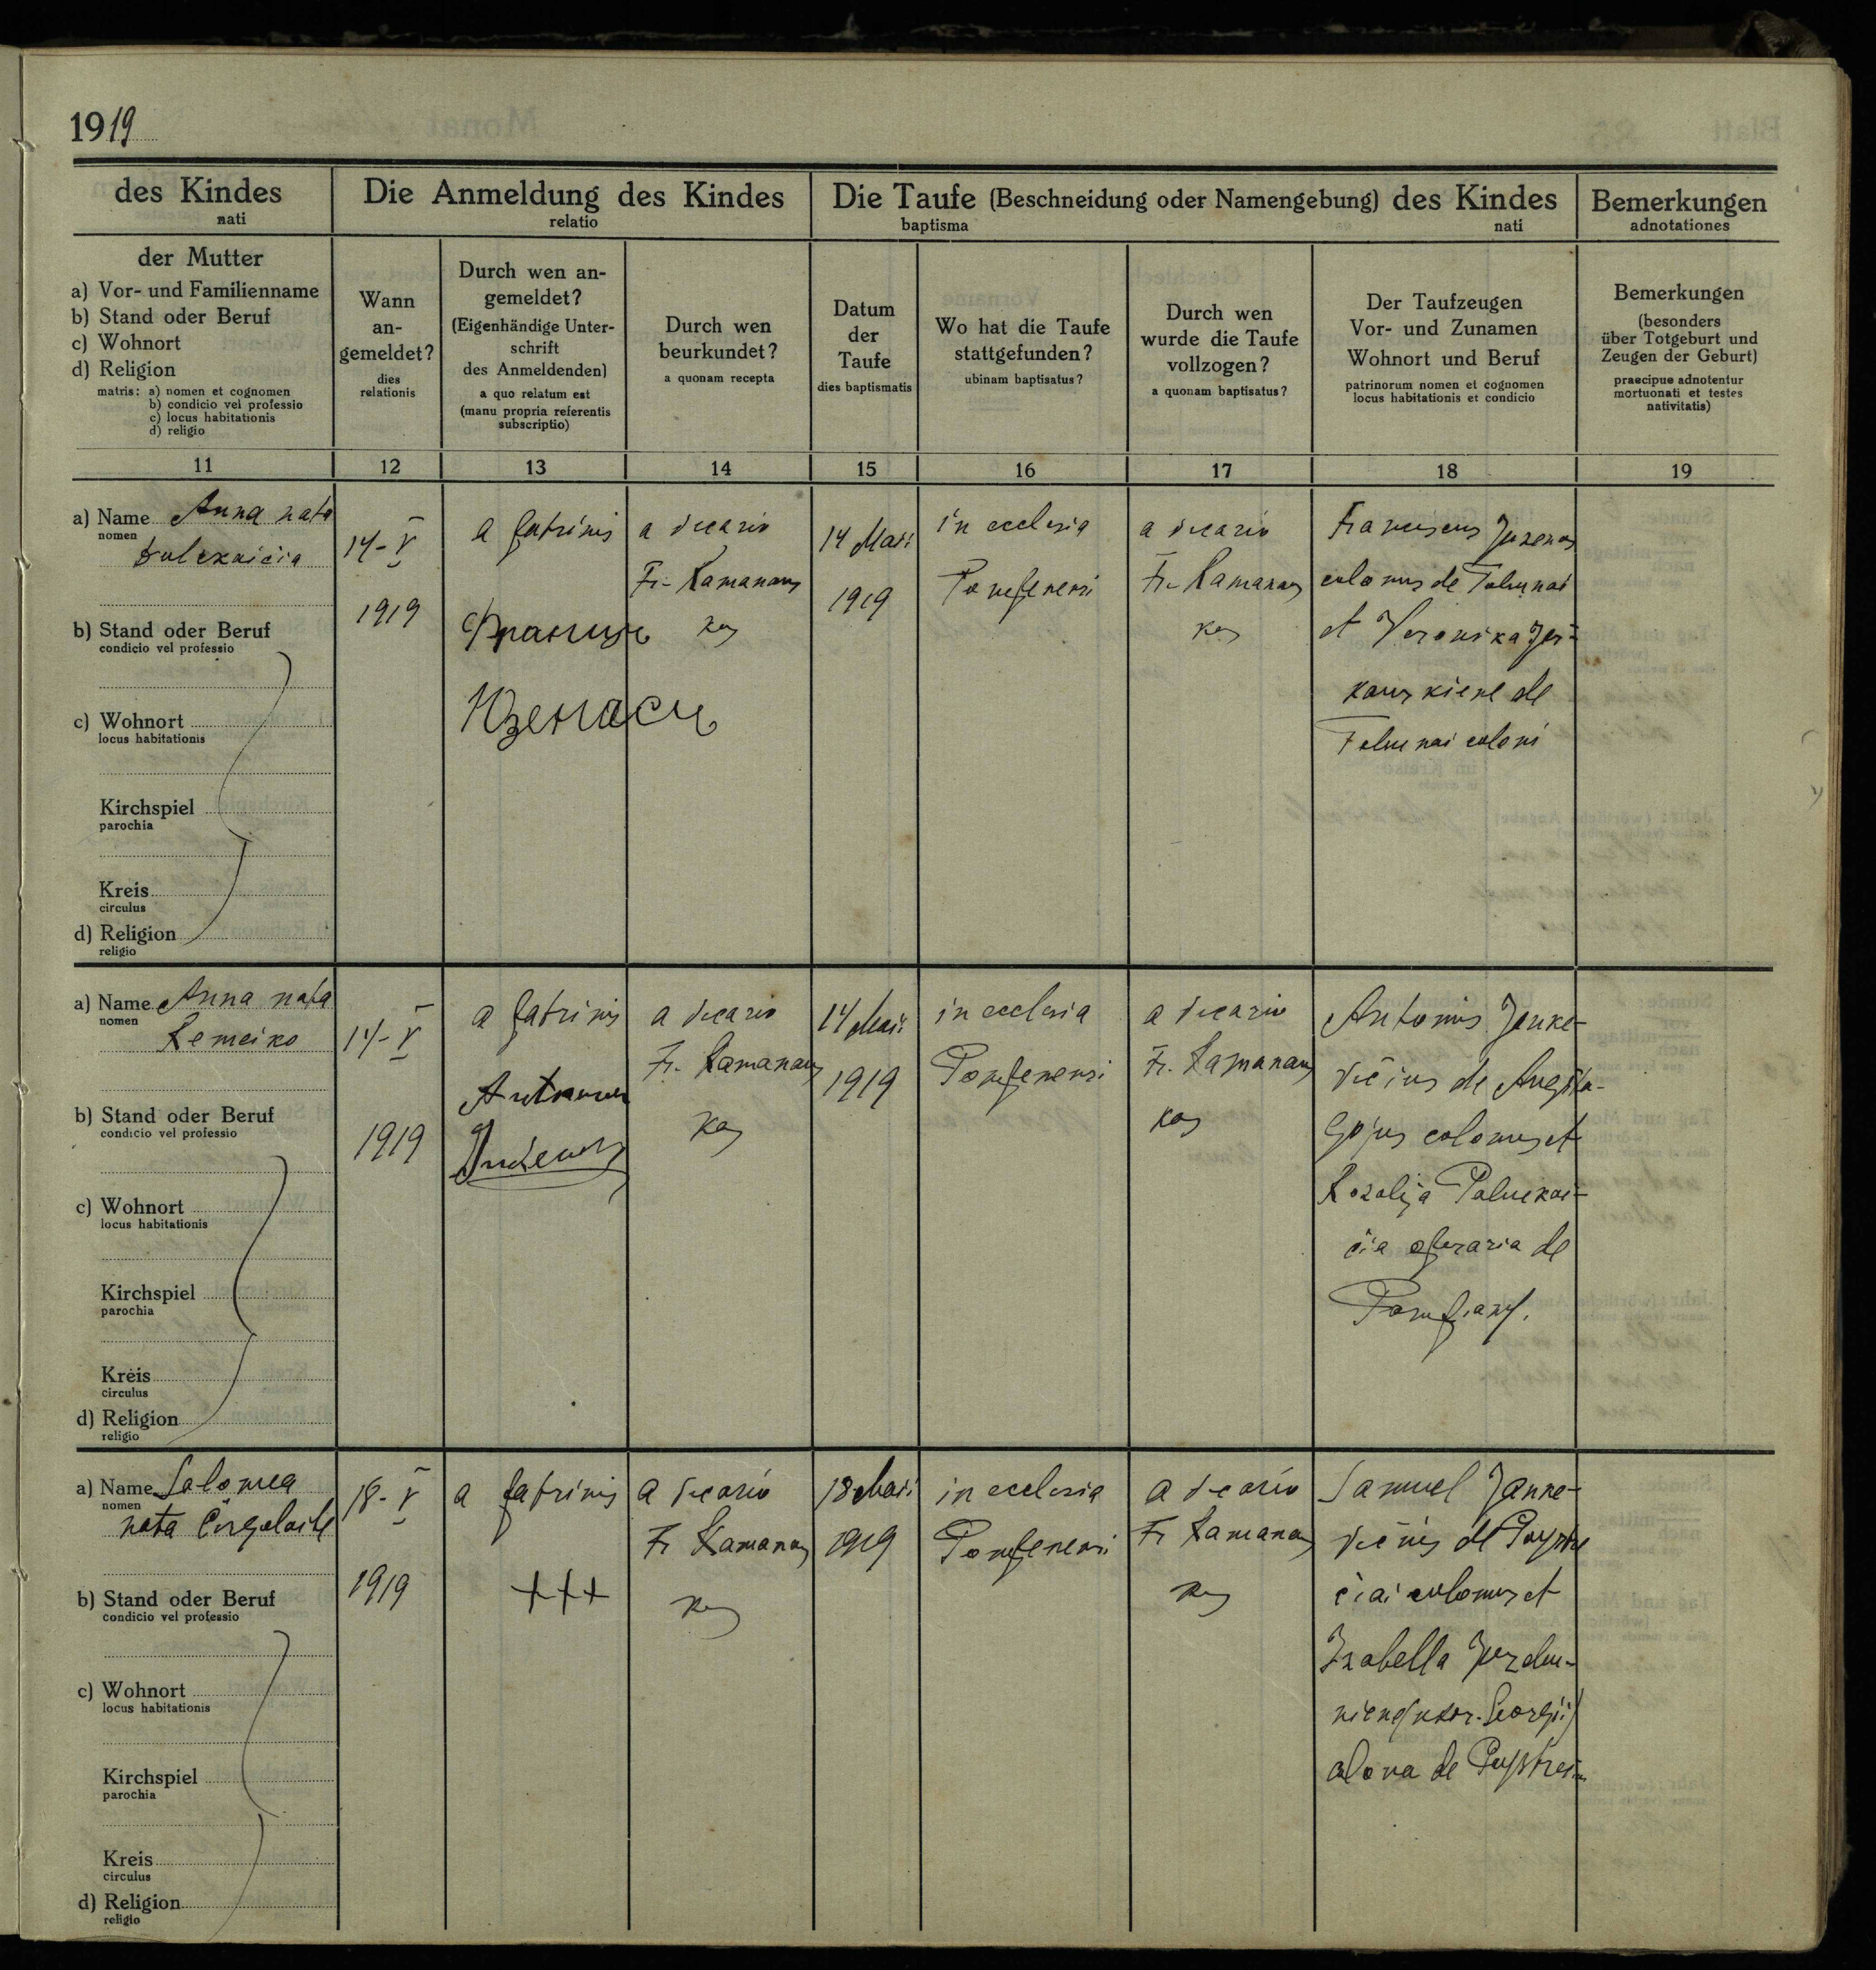 1919
des Kindes
nati
Die Anmeldung des Kindes
relatio
Die Taufe (Beschneidung oder Namengebung) des Kindes
baptisma nati
Bemerkungen
adnotationes
der Mutter
a) Vor- und Familienname
b) Stand oder Beruf
c) Wohnort
d) Religion
matris: a) nomen et cognomen
b) condicio vel professio
c) locus habitationis
d) religio
Wann
an-
gemeldet?
dies
relationis
Durch wen an-
gemeldet?
(Eigenhändige Unter-
schrift
des Anmeldenden)
a quo relatum est
(manu propria referentis
subscriptio)
Durch wen
beurkundet?
a quonam recepta
Datum
der
Taufe
dies baptismatis
Wo hat die Taufe
stattgefunden?
ubinam baptisatus?
Durch wen
wurde die Taufe
vollzogen?
a quonam baptisatus?
Der Taufzeugen
Vor- und Zunamen
Wohnort und Beruf
patrinorum nomen et cognomen
locus habitationis et condicio
Bemerkungen
(besonders
über Totgeburt und
Zeugen der Geburt)
praecipue adnotentur
mortuonati et testes
nativitatis)
11 12 13 14 15 16 17 18 19
a) Name Anna nata
nomen
b) Stand oder Beruf
condicio vel professio
c) Wohnort
locus habitationis
Kirchspiel
parochia
Kreis
circulus
d) Religion
religio
14-V
1919
a patrinis
Францъ
Юзенасъ
a vicario
Fr. Ramanaus
kas
14 Maii
1919
in ecclesia
Pompenensi
a vicario
Fr. Ramanaus
kas
Franciscus Juzenas
colonus de
et Veronika
de
coloni
a) Name Anna nata
nomen
Remeiko
b) Stand oder Beruf
condicio vel professio
c) Wohnort
locus habitationis
Kirchspiel
parochia
Kreis
circulus
d) Religion
religio
14-V
1919
a patrinis
a vicario
Fr. Ramanaus
kas
14 Maii
1919
in ecclesia
Pompenensi
a vicario
Fr. Ramanaus
kas
Antonius Janke-
vičius de
colonus et
Rozalija
operaria de
a) Name Salomea
nomen
nata
b) Stand oder Beruf
condicio vel professio
c) Wohnort
locus habitationis
Kirchspiel
parochia
Kreis
circulus
d) Religion
religio
18-V
1919
a patrinis
+++
a vicario
Fr Ramanaus
kas
18 Maii
1919
in ecclesia
Pompenensi
a vicario
Fr Ramanaus
kas
Samuel Janke-
de
colonus et
Izabella
(uxor Georgii)
de